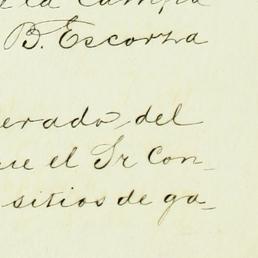 la Campa
B. Escorza
erado del
ue el Sr Con-
sitios de ga-